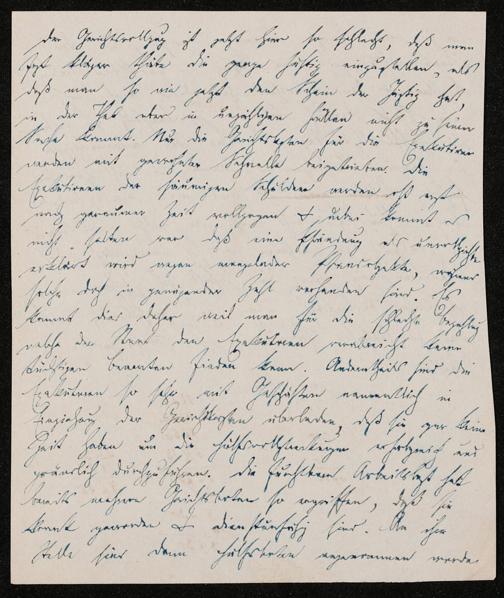 Der Gerichtsvollzug ist jetzt hier so schlecht, daß man
fast klüger thäte die ganze Justiz einzustellen, als
daß man so wie jetzt den Schein der Justiz hat,
in der That aber in unzähligen Fällen nicht zu seiner
Sache kommt. Nur die Gerichtskosten für die Exekutionen
werden mit gewohnter Schnelle beigetrieben. Die
Exekutionen der säumigen Schuldner werden oft erst
nach geraumer Zeit vollzogen & dabei kommt es
nicht selten vor daß eine Pfändung als unvollziehbar
erklärt wird wegen mangelnder Pfandobjekte, während
solche doch in genügender Zahl vorhanden sind. Es
kommt dies daher weil man für die schlechte Bezahlung
welche der Staat den Exekutoren verabreicht keine
tüchtigen Beamten finden kann. Andererseits sind die
Exekutoren so sehr mit Geschäften namentlich in
Einziehung der Gerichtskosten überladen, daß sie gar keine
Zeit haben um die Hülfsvollstreckungen erfolgreich und
gründlich durchzuführen. Die furchtbare Arbeitslast hat
bereits mehrere Gerichtsboten so ergriffen, daß sie
krank geworden & dienstunfähig sind. An ihre
Stelle sind dann Hülfsboten angenommen worden